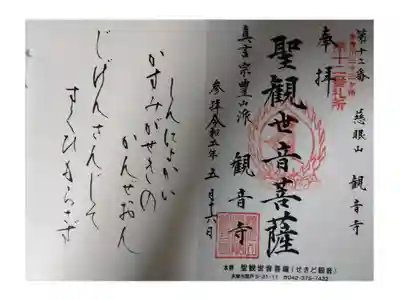 第十二番 慈眼山 観音寺
奉拝
第十二番札所
聖観世音菩薩
真言宗豊山派 観音寺
参拝令和五年五月十六日
本尊 聖観世音菩薩(せきど観音)
しんによかい
かすみがせきの
かんぜおん
じげんさんして
すくひたらさず